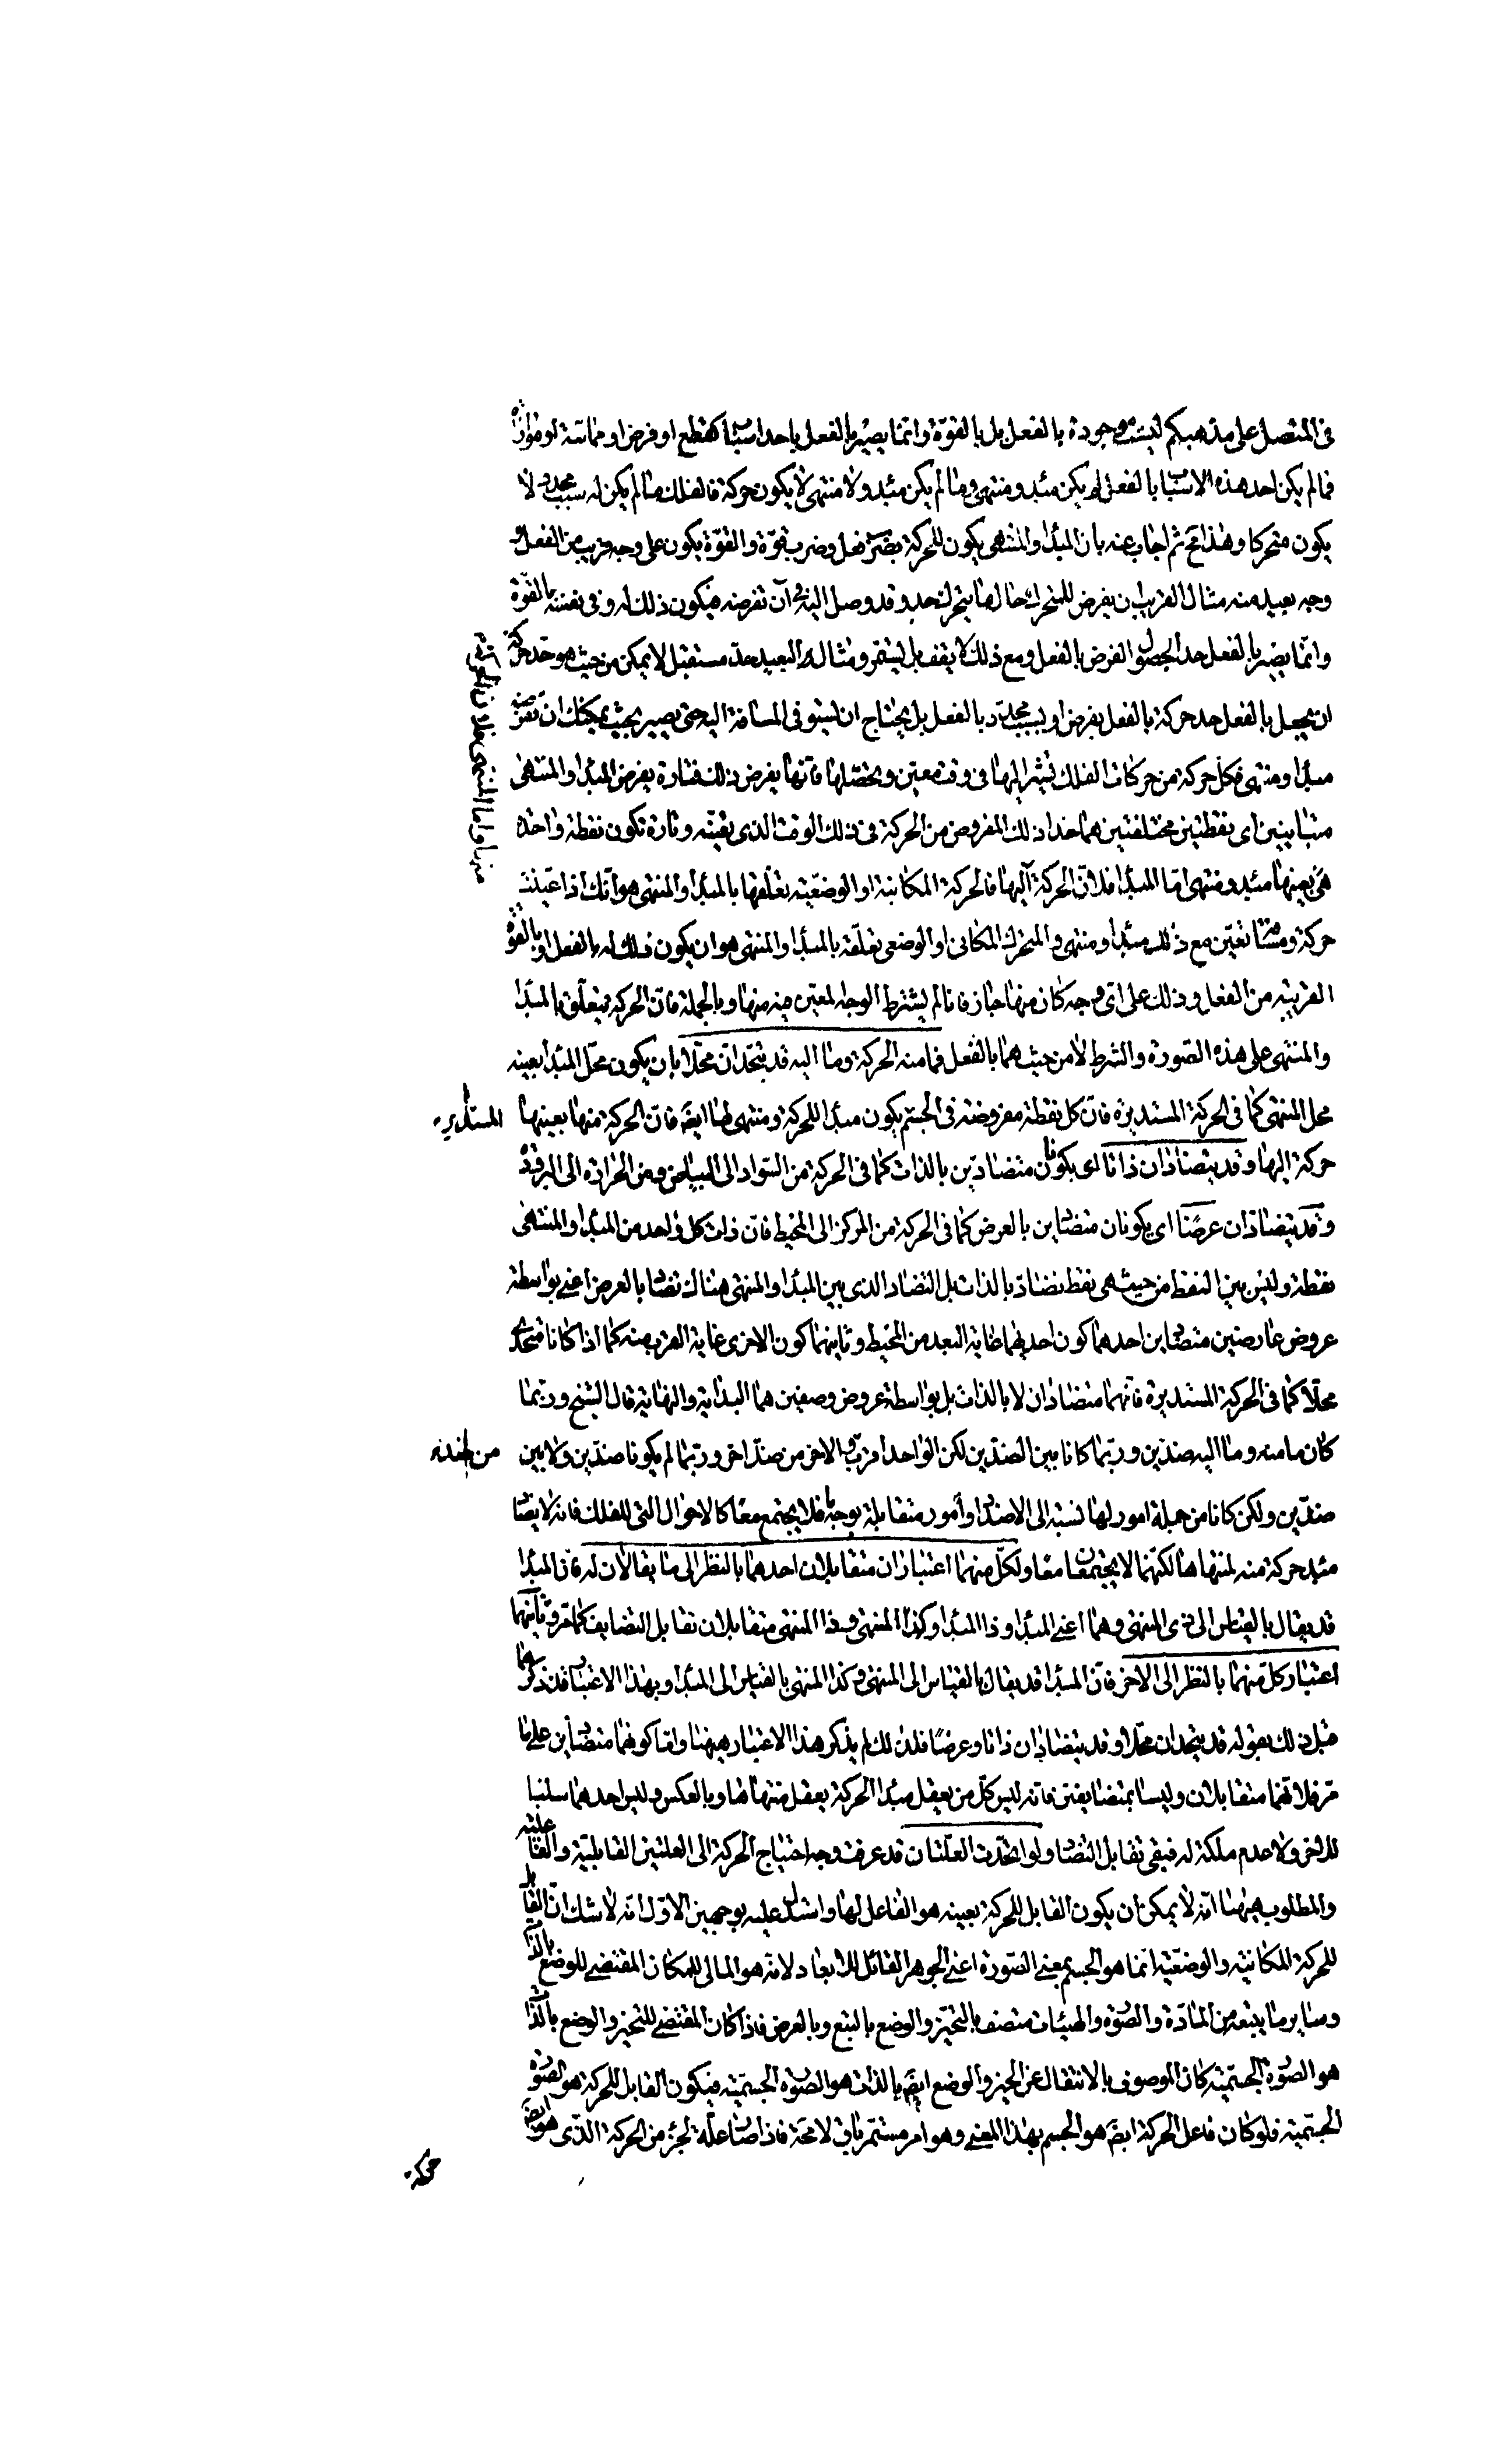 فى المتصل على مذهبكم ليست موجودة بالفعل بل بالقوّة وانّما يصير بالفعل باحد اسباب كقطع او فرض او مماسّة او موازاة
فما لم يكن احد هذه الاسباب بالفعل لم يكن مبدء و منتهى وما لم يكن مبدء ولا منتهى لا يكون حركة فالفلك ما لم يكن له سبب محدد لا
يكون متحركا وهذا مح ثم اجاب عنه بان المبدأ والمنتهى يكون للحركة بضرب فعل وضرب قوّة والقوّة يكون على وجه قريب من الفعل و
وجه بعيد منه مثال القريب ان يفرض للمتحرك حال ما يتحرك حد وقد وصل اليه فى آن تفرضه فيكون ذلك له وفى نفسه بالقوّة
وانّما يصير بالفعل حدا لحصول الفرض بالفعل ومع ذلك لا يقف بل يستمر ومثال البعيد حدّ مستقبل لا يمكن من حيث هو حد حركة
ان يجعل بالفعل حد حركة بالفعل بفرض او بسبب محدّد بالفعل بل يحتاج ان يستوفى المسافة اليه حتى يصير بحيث يمكنك ان تفرضه
مبدأ ومنتهى فكل حركة من حركات الفلك تشير اليها فى وقت معين وتحصّلها فانّها يفرض ذلك فتارة يفرض المبدأ والمنتهى
متباينين اى نقطتين مختلفتين هما حدا ذلك المفروض من الحركة فى ذلك الوقت الذى تعيّنه وتارة تكون نقطة واحدة
هى بعينها مبدء ومنتهى امّا المبدأ فلانّ الحركة اليها فالحركة المكانية او الوضعيّة تعلّقها بالمبدأ والمنتهى هو انّك اذا عيّنت
حركة ومسافة تعيّن مع ذلك مبدأ ومنتهى والمتحرك المكانى او الوضعى تعلّقه بالمبدأ والمنتهى هو ان يكون ذلك له بالفعل او بالقوّة
القريبة من الفعل وذلك على اىّ وجه كان منها جاز فانا لم نشترط الوجه المعيّن منه منها وبالجملة فانّ الحركة يتعلّق بالمبدأ
والمنتهى على هذه الصّورة والشرط لا من حيث هما بالفعل فما منه الحركة وما اليه قد يتّحدان محلّا بان يكون محلّ المبدأ بعينه
محل المنتهى كما فى الحركة المستديرة فانّ كل نقطة مفروضة فى الجسم يكون مبدأ للحركة ومنتهى لها ايضَ فانّ الحركة منها بعينها
حركة اليها وقد يتضادّان ذاتا اى يكونان متضادّين بالذات كما فى الحركة من السّواد الى البياض ومن الحرارة الى البرودة
وقد يتضادّان عرضًا اى يكونان متضادّين بالعرض كما فى الحركة من المركز الى المحيط فانّ ذات كل واحد من المبدأ والمنتهى
نقطة وليس بين النقط من حيث هى نقط تضادّ بالذات بل التضاد الذى بين المبدأ والمنتهى هناك تضاد بالعرض اعنى بواسطة
عروض عارضين متضادّين احدهما كون احديهما غاية البعد من المحيط وثانيهما كون الاخرى غاية القرب منه كما اذا كانا متّحدين
محلّا كما فى الحركة المستديرة فانّهما متضادّان لا بالذات بل بواسطة عروض وصفين هما البداية والنهاية قال الشيخ وربّما
كان ما منه وما اليه ضدّين وربّما كانا بين الضدّين لكن الواحد اقرب والاخر من ضدّ اخر وربّما لم يكونا ضدّين ولا بين
ضدّين ولكن كانا من جملة امور لها نسبة الى الاضداد او امور متقابلة بوجه ما فلا يجتمع معًا كالاحوال التى للفلك فانه لا يضاد
مبدء حركة منه لمنتهاها لكنّهما لا يجتمعان معًا ولكلّ منهما اعتباران متقابلان احدهما بالنظر الى ما يقالان له فانّ المبدأ
قد يقال بالقياس الى ذى المنتهى وهما اعنى المبدأ وذا المبدأ وكذا المنتهى وذا المنتهى متقابلان تقابل التضايف كما مر وثانيهما
اعتبار كل منهما بالنظر الى الاخر فانّ المبدأ قد يقال بالقياس الى المنتهى وكذا المنتهى بالقياس الى المبدأ وبهذا الاعتبار قد ذكرهما
قبل ذلك بقوله قد يتحدان محلّا وقد يتضادّان ذاتا وعرضًا فلذلك لم يذكر هذا الاعتبار هيهنا وامّا كونهما متضادّين على ما
مرّ فلانّهما متقابلان وليسا بمتضايفين فانه ليس كلّ من يعقل مبدأ الحركة يعقل منتهاها وبالعكس وليس احدهما سلبا
للاخر ولا عدم ملكة له فبقى تقابل التضاد ولو اتّحدت العلّتان قد عرفت وجه احتياج الحركة الى العلتين القابليّة والفاعليّة
والمطلوب هيهنا انّه لا يمكن ان يكون القابل للحركة بعينه هو الفاعل لها واستدل عليه بوجهين الاوّل انّه لا شك انّ القابل
للحركة المكانية والوضعيّة انّما هو الجسم بمعنى الصّورة اعنى الجوهر القابل للابعاد لانه هو المالى للمكان المقتضى للوضع بالذّات
وساير ما يتبعه من المادّة والصّورة والهيئات متصف بالتحيّز والوضع بالتبع وبالعرض فاذا كان المقتضى للتحيّز والوضع بالذّات
هو الصّورة الجسميّة كان الموصوف بالانتقال عن الحيز والوضع ايضَ بالذات هو الصّورة الجسميّة فيكون القابل للحركة هو الصّورة
الجسميّة فلو كان فاعل الحركة ايضَ هو الجسم بهذا المعنى وهو امر مستمرّ باق لا محة فاذا صار علّة لجزء من الحركة الذّى هو ايضَ
منها واما المنتهى فلان الحركة
المستديرة
من ضد
حركة